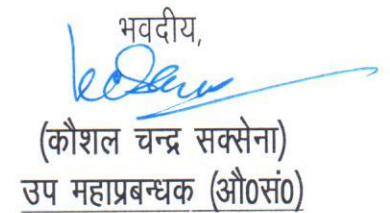 भवदीय,
(कौशल चन्द्र सक्सेना)
उप महाप्रबन्धक (औ०सं०)